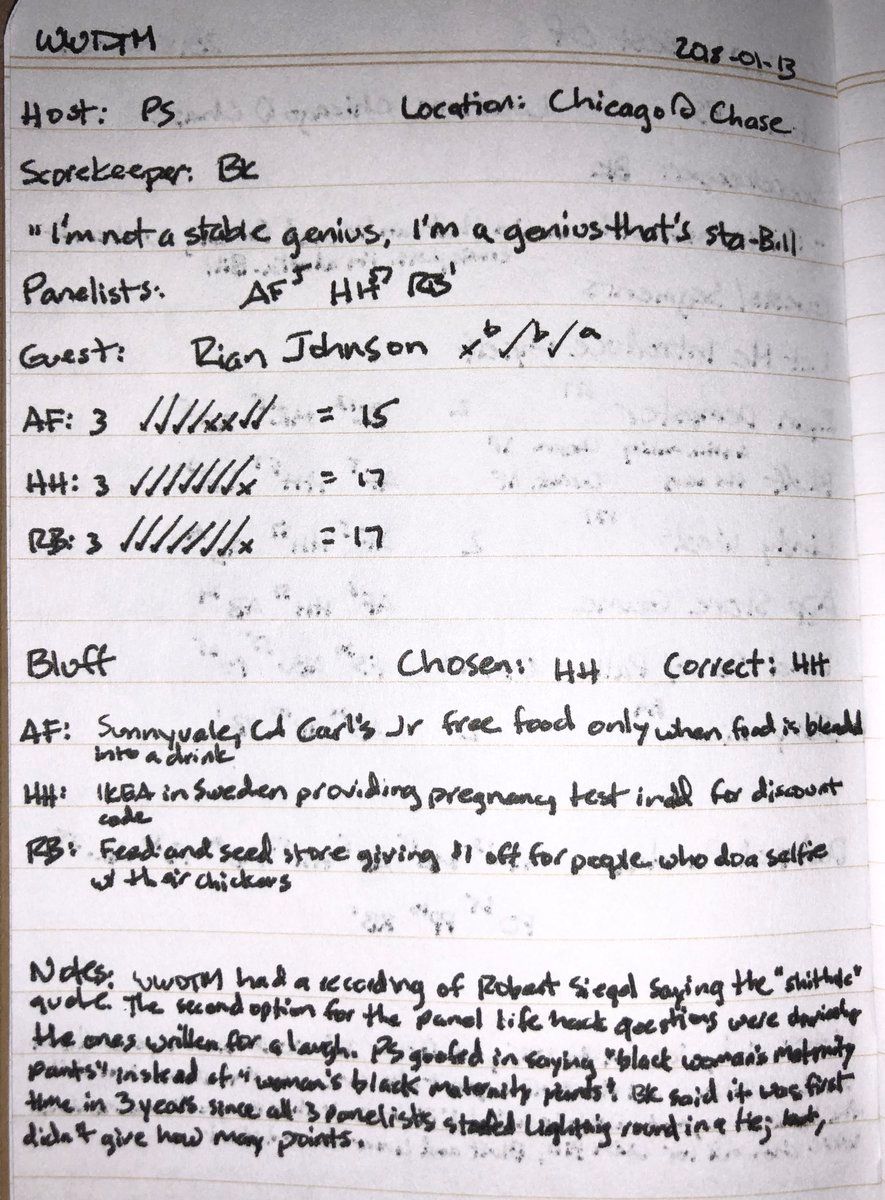 WWDTM 2018-01-13
Host: PS Location: Chicago @ Chase
Scorekeeper: BK
"I'm not a stable genius, I'm a genius that's sta-Bill
Panelists: AF³ HH⁵⁷ RB¹
Guest: Rian Johnson xᵇ✓ᵇ✓ᵃ
AF: 3 ✓✓✓✓xx✓✓ = 15
HH: 3 ✓✓✓✓✓✓✓x = 17
RB: 3 ✓✓✓✓✓✓✓x = 17
Bluff Chosen: HH Correct: HH
AF: Sunnyvale, CA Carl's Jr free food only when food is blended
into a drink
HH: IKEA in Sweden providing pregnancy test in ad for discount
code
RB: Feed and seed store giving $1 off for people who do a selfie
w/ their chickens
Notes: WWDTM had a recording of Robert Siegel saying the "shithole"
quote. The second option for the panel life hack questions were
the ones written for a laugh. PS goofed in saying "black woman's maternity
pants" instead of "woman's black maternity pants". BK said it was first
time in 3 years since all 3 panelists started Lightning round in a tie; but,
didn't give how many points.